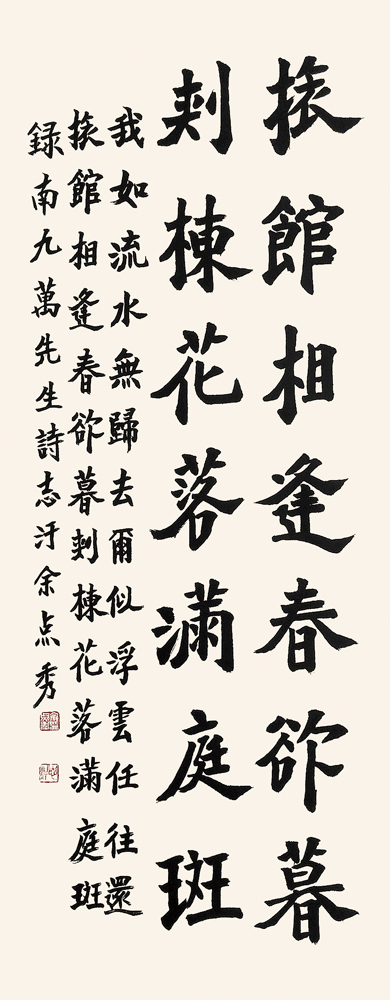 掖館相逢春欲暮
刺棟花落滿庭斑
我如流水無歸去爾似浮雲任往還
掖館相逢春欲暮刺棟花落滿庭斑
録南九萬先生詩志汙余点秀